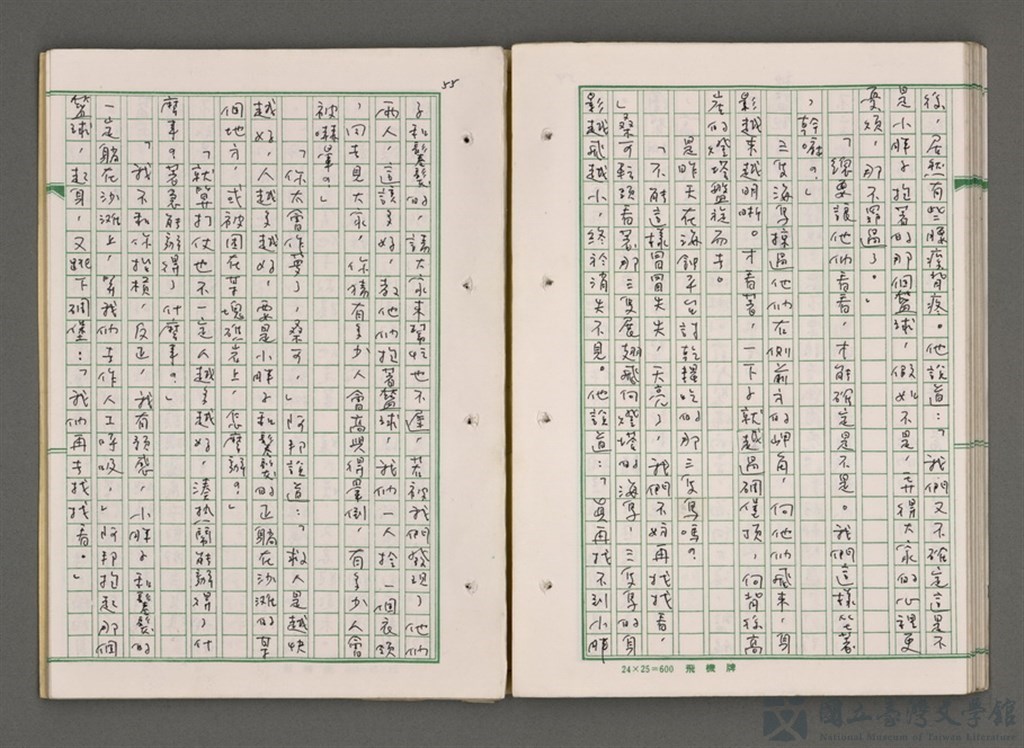 後，居然有些腰痠背疼。他說道：「我們又不確定這是不
是小胖子抱著的那個籃球，假如不是，弄得大家的心裡更
憂煩，那不罪過了。」
「總要讓他們看看，才能確定是不是。我們這樣坐著
，幹啥？」
三隻海鳥掠過他們左側前方的岬角，向他們飛來，身
影越來越明晰。才看著，一下子就越過碉堡頂，向背後高
崖的燈塔盤旋而去。
是昨天在海釣平台討乾糧吃的那三隻鳥嗎？
「不能這樣冒冒失失，天亮了，我們不妨再找找看，
」桑可轉頭看著那三隻展翅飛向燈塔的海鳥，三隻鳥的身
影越飛越小，終於消失不見。他說道：「真再找不到小胖
55
子和鬈髮的，請大家來幫忙也不遲，若被我們發現了他們
兩人，這該多好，教他們抱著籃球，我們一人拎一個衣領
，回去見大家，你猜有多少人會高興得暈倒，有多少人會
被嚇暈？」
「你太會作夢了，桑可，」阿邦說道：「救人是越快
越好，人越多越好，要是小胖子和鬈髮的正躺在沙灘的某
個地方，或被困在某塊礁岩上，怎麼辦？」
「就算打仗也不一定人越多越好，湊熱鬧能辦得了什
麼事？著急能辦得了什麼事？」
「我不和你抬槓，反正，我有預感，小胖子和鬈髮的
一定躺在沙灘上，等我們去作人工呼吸，」阿邦抱起那個
籃球，起身，又跳下碉堡：「我們再去找找看。」
24×25=600 飛機牌
國立臺灣文學館
National Museum of Taiwan Literature